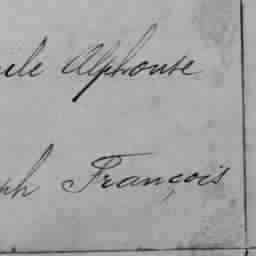 Alphonse
ph François